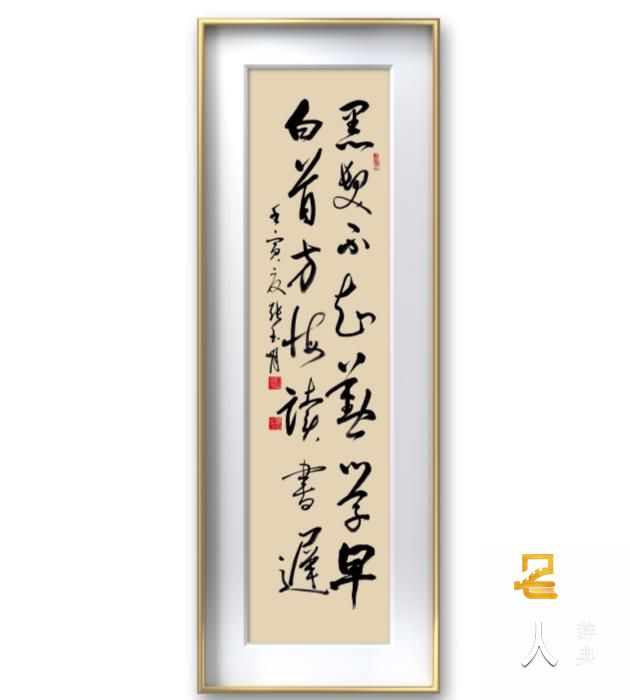 黑髮不知勤學早
白首方悔讀書遲
壬寅夏張玉明
名
人
辞典